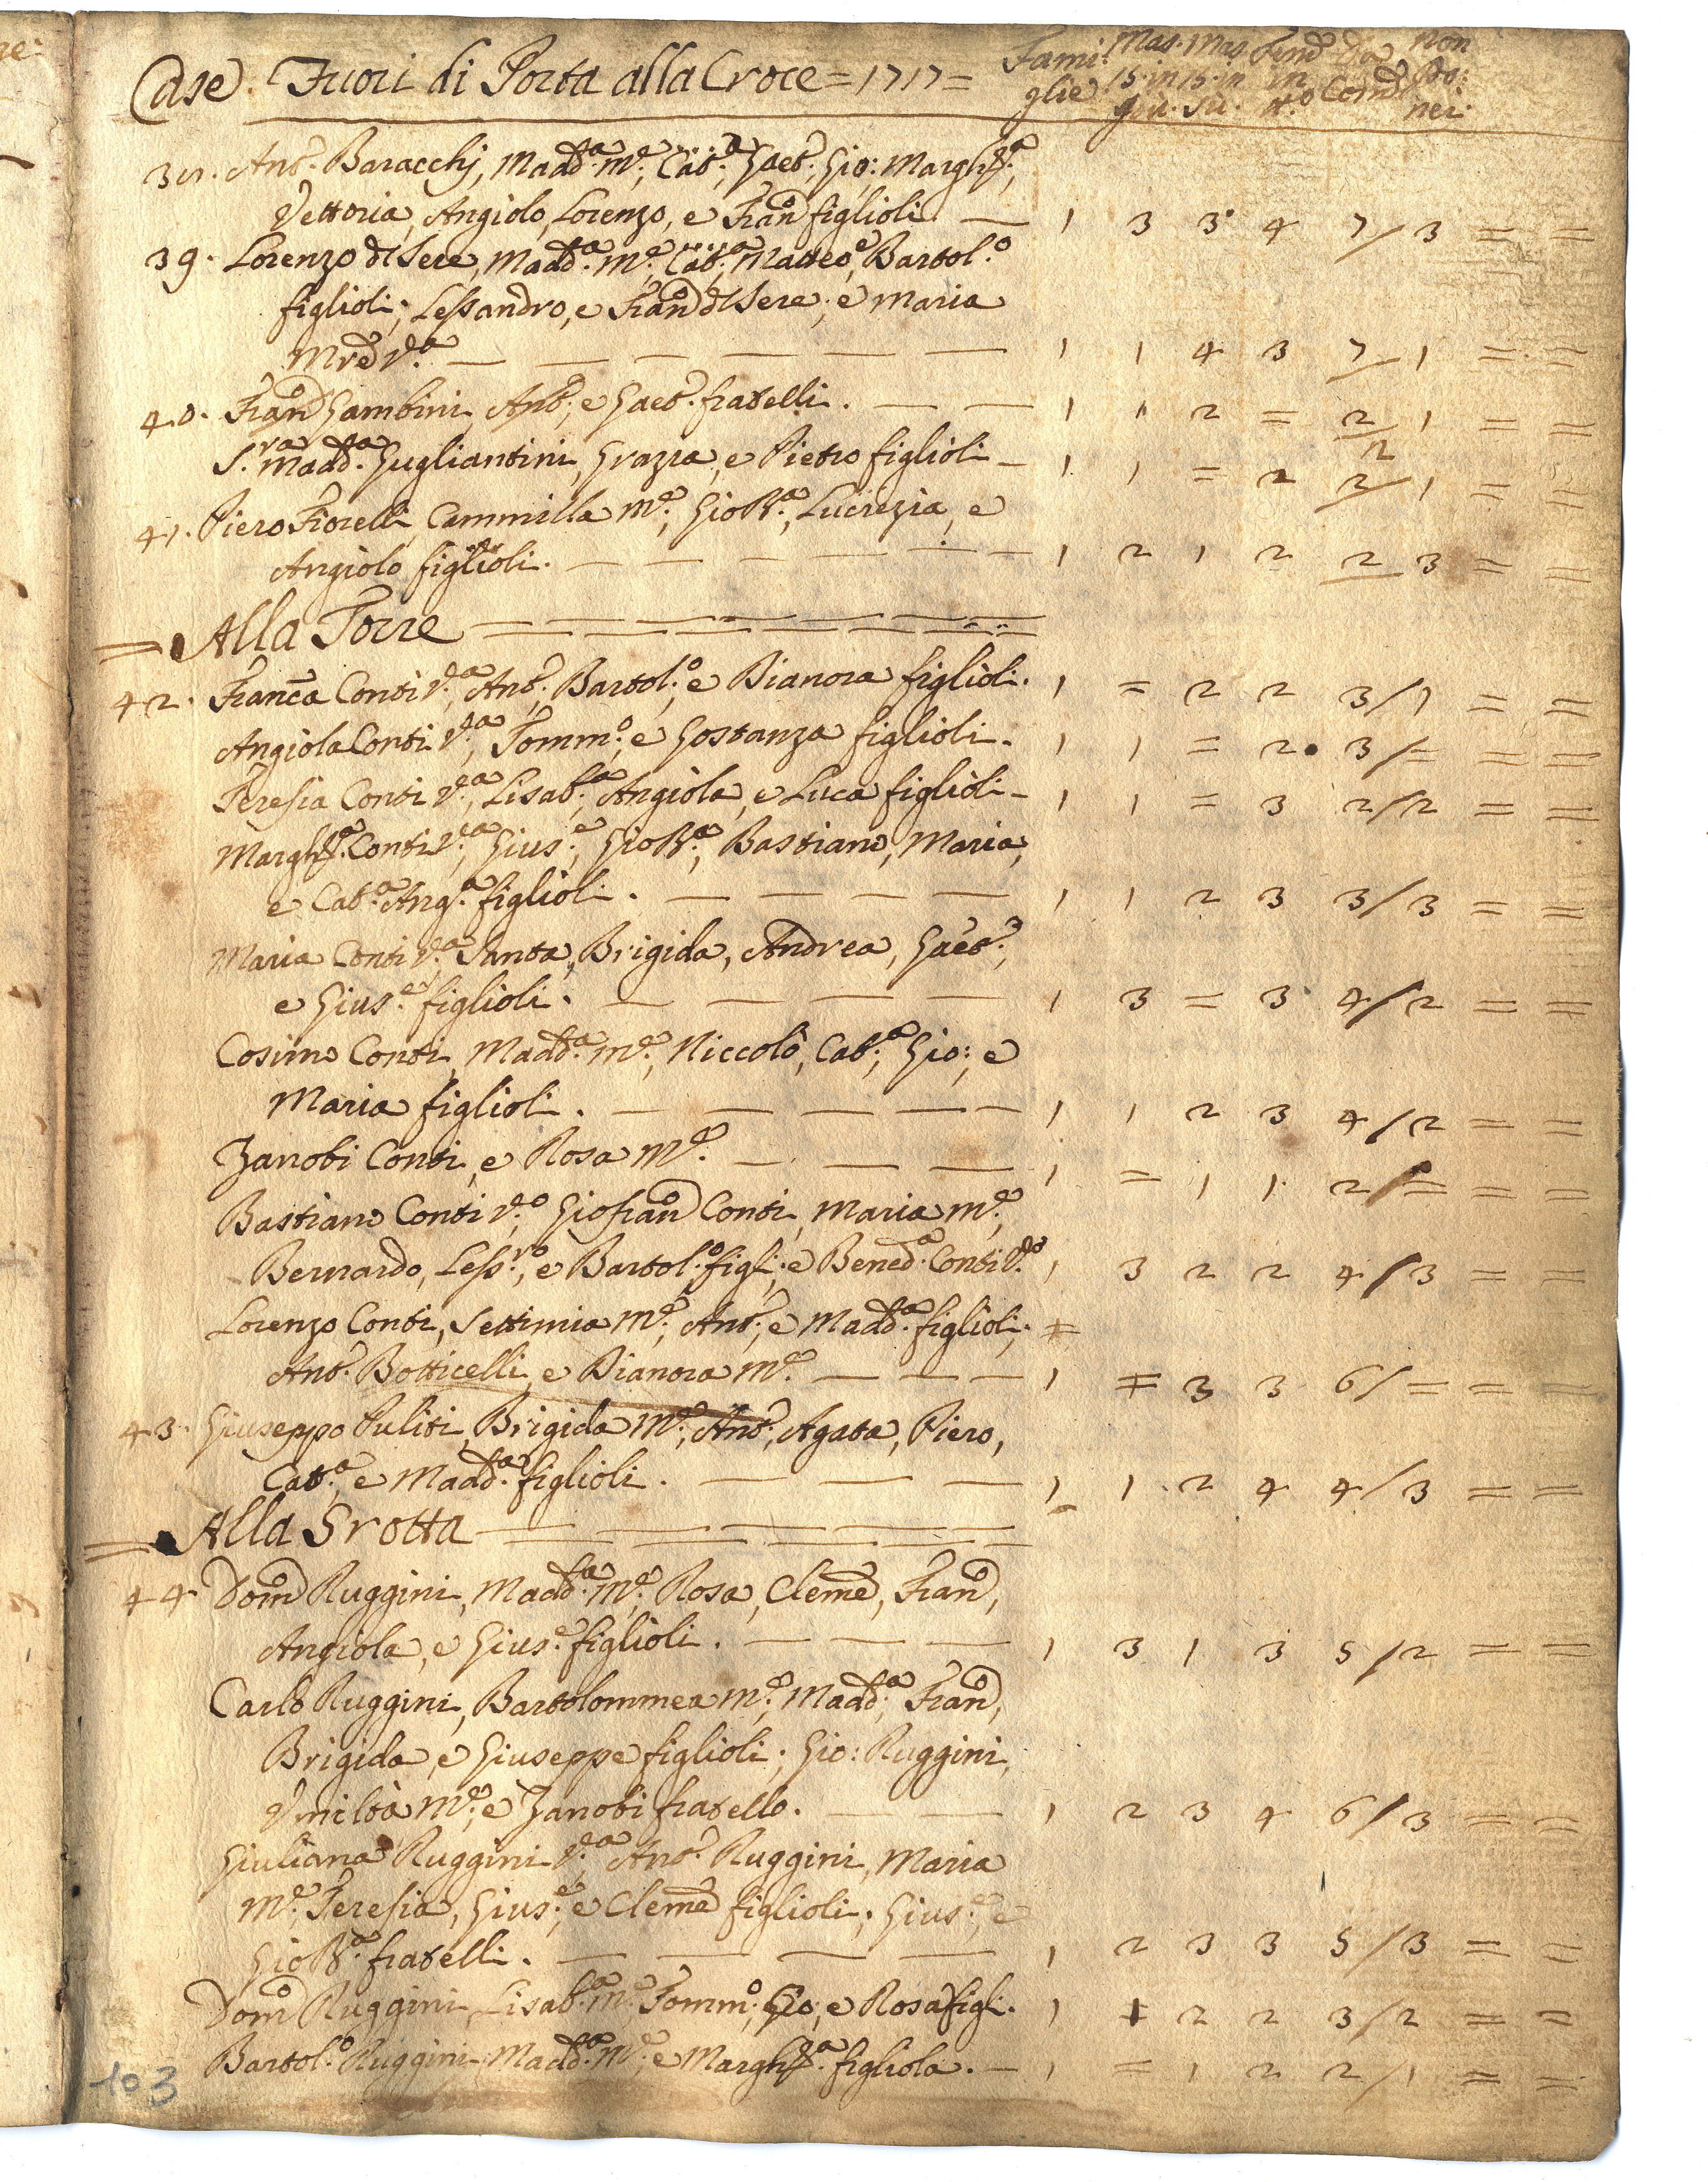 Case. Fuori di Porta alla Croce = 1717 = Fami: glie Mas. 15. in giù. Mas. 15. in sù. Fem̃e in tt.o Da Com̃e non Co: nei.
Ant.o Baracchj, Madd.a m.e, Cat.a, Gaet.o, Gio:, Margh.ta,
Vettoria, Angiolo, Lorenzo, e Fran.o figlioli. — 1 3 3 4 7/3 = =
39. Lorenzo dl Sere, Madd.a m.e, Cat.a, Matteo, Bartol.o
figlioli; Lessandro, e Fran.o dl Sere; e Maria
Mre V.a — — — — — — 1 1 4 3 7/1 = =
40. Fran.o Gambini, Ant.o, e Gaet.o fratelli. — — 1 1 2 = 2/1 = =
S.ra Madd.a Gugliantini, Grazia, e Pietro figlioli — 1 1 = 2 2/1 = =
41. Piero Fiorelli, Cammilla m.e, Gio B.a, Lucrezia, e
Angiolo figlioli. — — — — — — 1 2 1 2 2 3 = =
= Alla Torre = = = = = =
42. Franc̃a Conti V.a, Ant.o, Bartol.o, e Dianora figlioli. 1 = 2 2 3/1 = =
Angiola Conti V.a, Tomm.o, e Gostanza figlioli. 1 1 = 2 3/= = =
Teresia Conti V.a, Lisab.a, Angiola, e Luca figlioli — 1 1 = 3 2/2 = =
Margh.ta Conti V.a, Gius.e, Gio B.a, Bastiano, Maria,
e Cat.a Ang.a figlioli. — — — — 1 1 2 3 3/3 = =
Maria Conti V.a, Santa, Brigida, Andrea, Gaet.o,
e Gius.e figlioli. — — — — 1 3 = 3 4/2 = =
Cosimo Conti, Madd.a m.e, Niccolò, Cat.a, Gio:, e
Maria figlioli. — — — — — 1 1 2 3 4/2 = =
Zanobi Conti, e Rosa m.e — — — 1 = 1 1 2/= = =
Bastiano Conti V.o, Gio fran.o Conti, Maria m.e,
Bernardo, Less.ro, e Bartol.o figl:; e Bened.a Conti V.a 1 3 2 2 4/3 = =
Lorenzo Conti, Settimia m.e, Ant.o, e Madd.a figlioli;
Ant.o Botticelli, e Dianora m.e — — — 1 = 3 3 6/= = =
43. Giuseppe Puliti, Brigida m.e, Ant.o, Agata, Piero,
Cat.a, e Madd.a figlioli. — — — 1 1 2 4 4/3 = =
= Alla Grotta = = = = =
44. Dom.o Ruggini, Madd.a m.e, Rosa, Cleme, Fran.o,
Angiola, e Gius.e figlioli. — — — 1 3 1 3 5/2 = =
Carlo Ruggini, Bartolommea m.e, Madd.a, Fran.o,
Brigida, e Giuseppe figlioli; Gio: Ruggini,
Vmiltà m.e, e Zanobi fratello. — — 1 2 3 4 6/3 = =
Giuliana Ruggini V.a, Ant.o Ruggini, Maria
m.e, Teresia, Gius.e, e Cleme figlioli; Gius.e, e
Gio B.a fratelli. — — — — 1 2 3 3 5/3 = =
Dom.o Ruggini, Lisab.a m.e, Tomm.o, Gio, e Rosa figli. 1 1 2 2 3/2 = =
Bartol.o Ruggini, Madd.a m.e, e Margh.ta figliola. — 1 = 1 2 2/1 = =
103